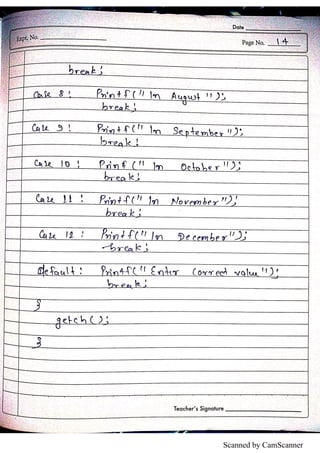 Date
Expt. No.
Page No. 14
break;
Case 8 : Printf(" \n August ");
break;
Case 9 : Printf(" \n September ");
break;
Case 10 : Prinf (" \n October ");
break;
Case 11 : Printf(" \n November ");
break;
Case 12 : Printf(" \n December ");
break;
default : Printf(" Enter Correct value ");
break;
}
getch();
}
Teacher's Signature
Scanned by CamScanner